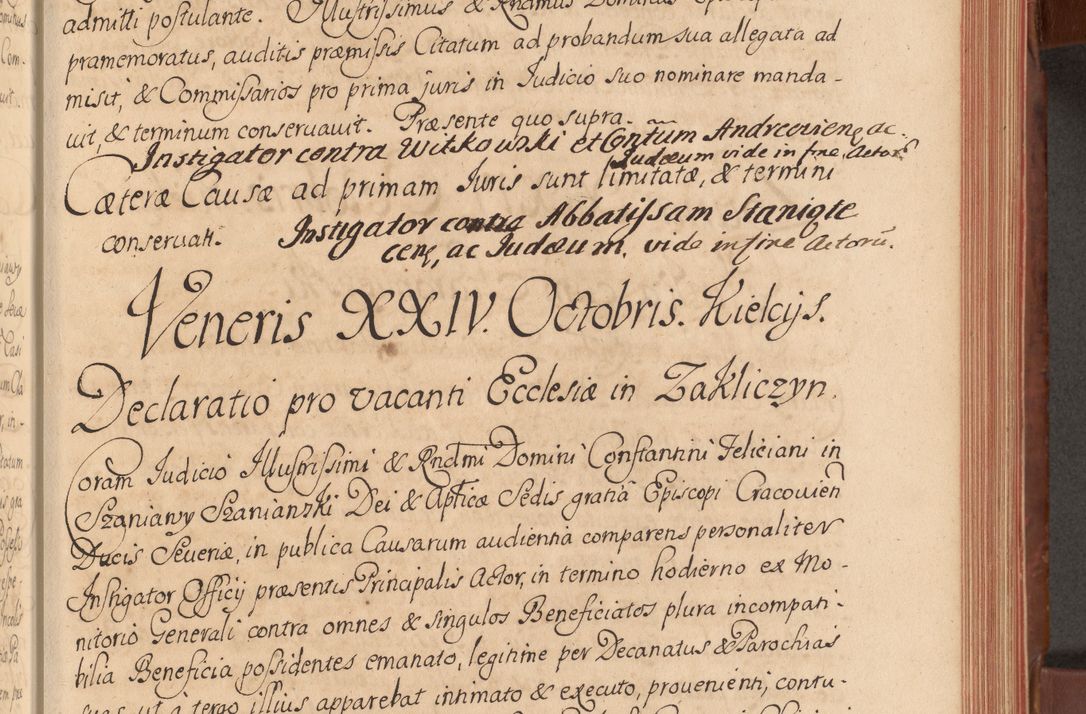 admitti postulante. Illustrissimus & Rndmus Dominus
præmemoratus, auditis præmissis Citatum ad probandum sua allegata ad
misit, & Commissarios pro prima juris in Iudicio suo nominare manda-
uit, & terminum conseruauit. Præsente quo supra.
Instigator contra Witkowski et Conṽtum Andreovienẹ ac.
Iudæum vide in fine Actorũ
Cæteræ Causæ ad primam Iuris sunt limitatæ, & termini
conseruati.
Instigator contra Abbatissam Staniąte
cenẹ, ac Iudæum. vide in fine Actorũ.
Veneris XXIV. Octobris. Kielcijs.
Declaratio pro vacanti Ecclesiæ in Zakliczyn.
Coram Iudicio Illustrissimi & Rndmi Domini Constantini Feliciani in
Szaniawy Szanianzki Dei & Aplicæ Sedis gratia Episcopi Cracouieñ
Ducis Seueriæ, in publica Causarum audientia comparens personaliter
Instigator Officij præsentis Principalis Actor, in termino hodierno ex Mo-
nitorio Generali contra omnes & singulos Beneficiatos plura incompati-
bilia Beneficia possidentes emanato, legitime per Decanatus & Parochias
suas ut a tergo illius apparebat intimato & executo, prouenienti, contu-